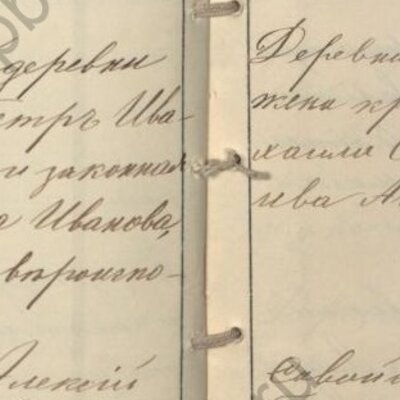 деревни
етръ Ива-
и законная
а Иванова,
вѣроиспо-
Алексій
Деревн
жена кр
хаила
ива А